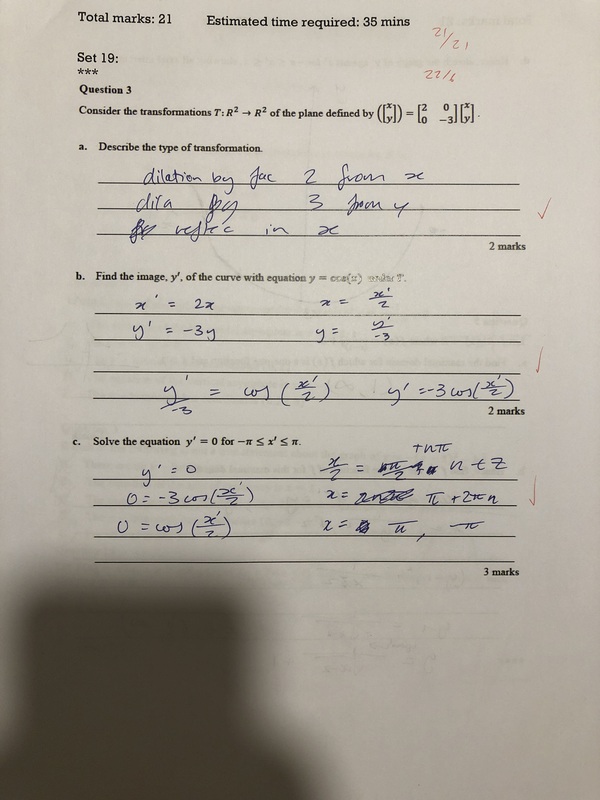 Total marks: 21 Estimated time required: 35 mins
21/21
Set 19:
22/6
***
Question 3
Consider the transformations T: R² → R² of the plane defined by ([x y]) = [2 0 0 −3][x y].
a. Describe the type of transformation.
dilation by fac 2 from x
dila by 3 from y
reflec in x
2 marks
b. Find the image, y', of the curve with equation y = cos(x) under T.
x' = 2x x = x'/2
y' = -3y y = y'/-3
y'/-3 = cos(x'/2) y' = -3cos(x'/2)
2 marks
c. Solve the equation y' = 0 for −π ≤ x' ≤ π.
+nπ
y' = 0 x/2 = n ∈ Z
0 = -3cos(x'/2) x = π + 2πn
0 = cos(x'/2) x = π, -π
3 marks